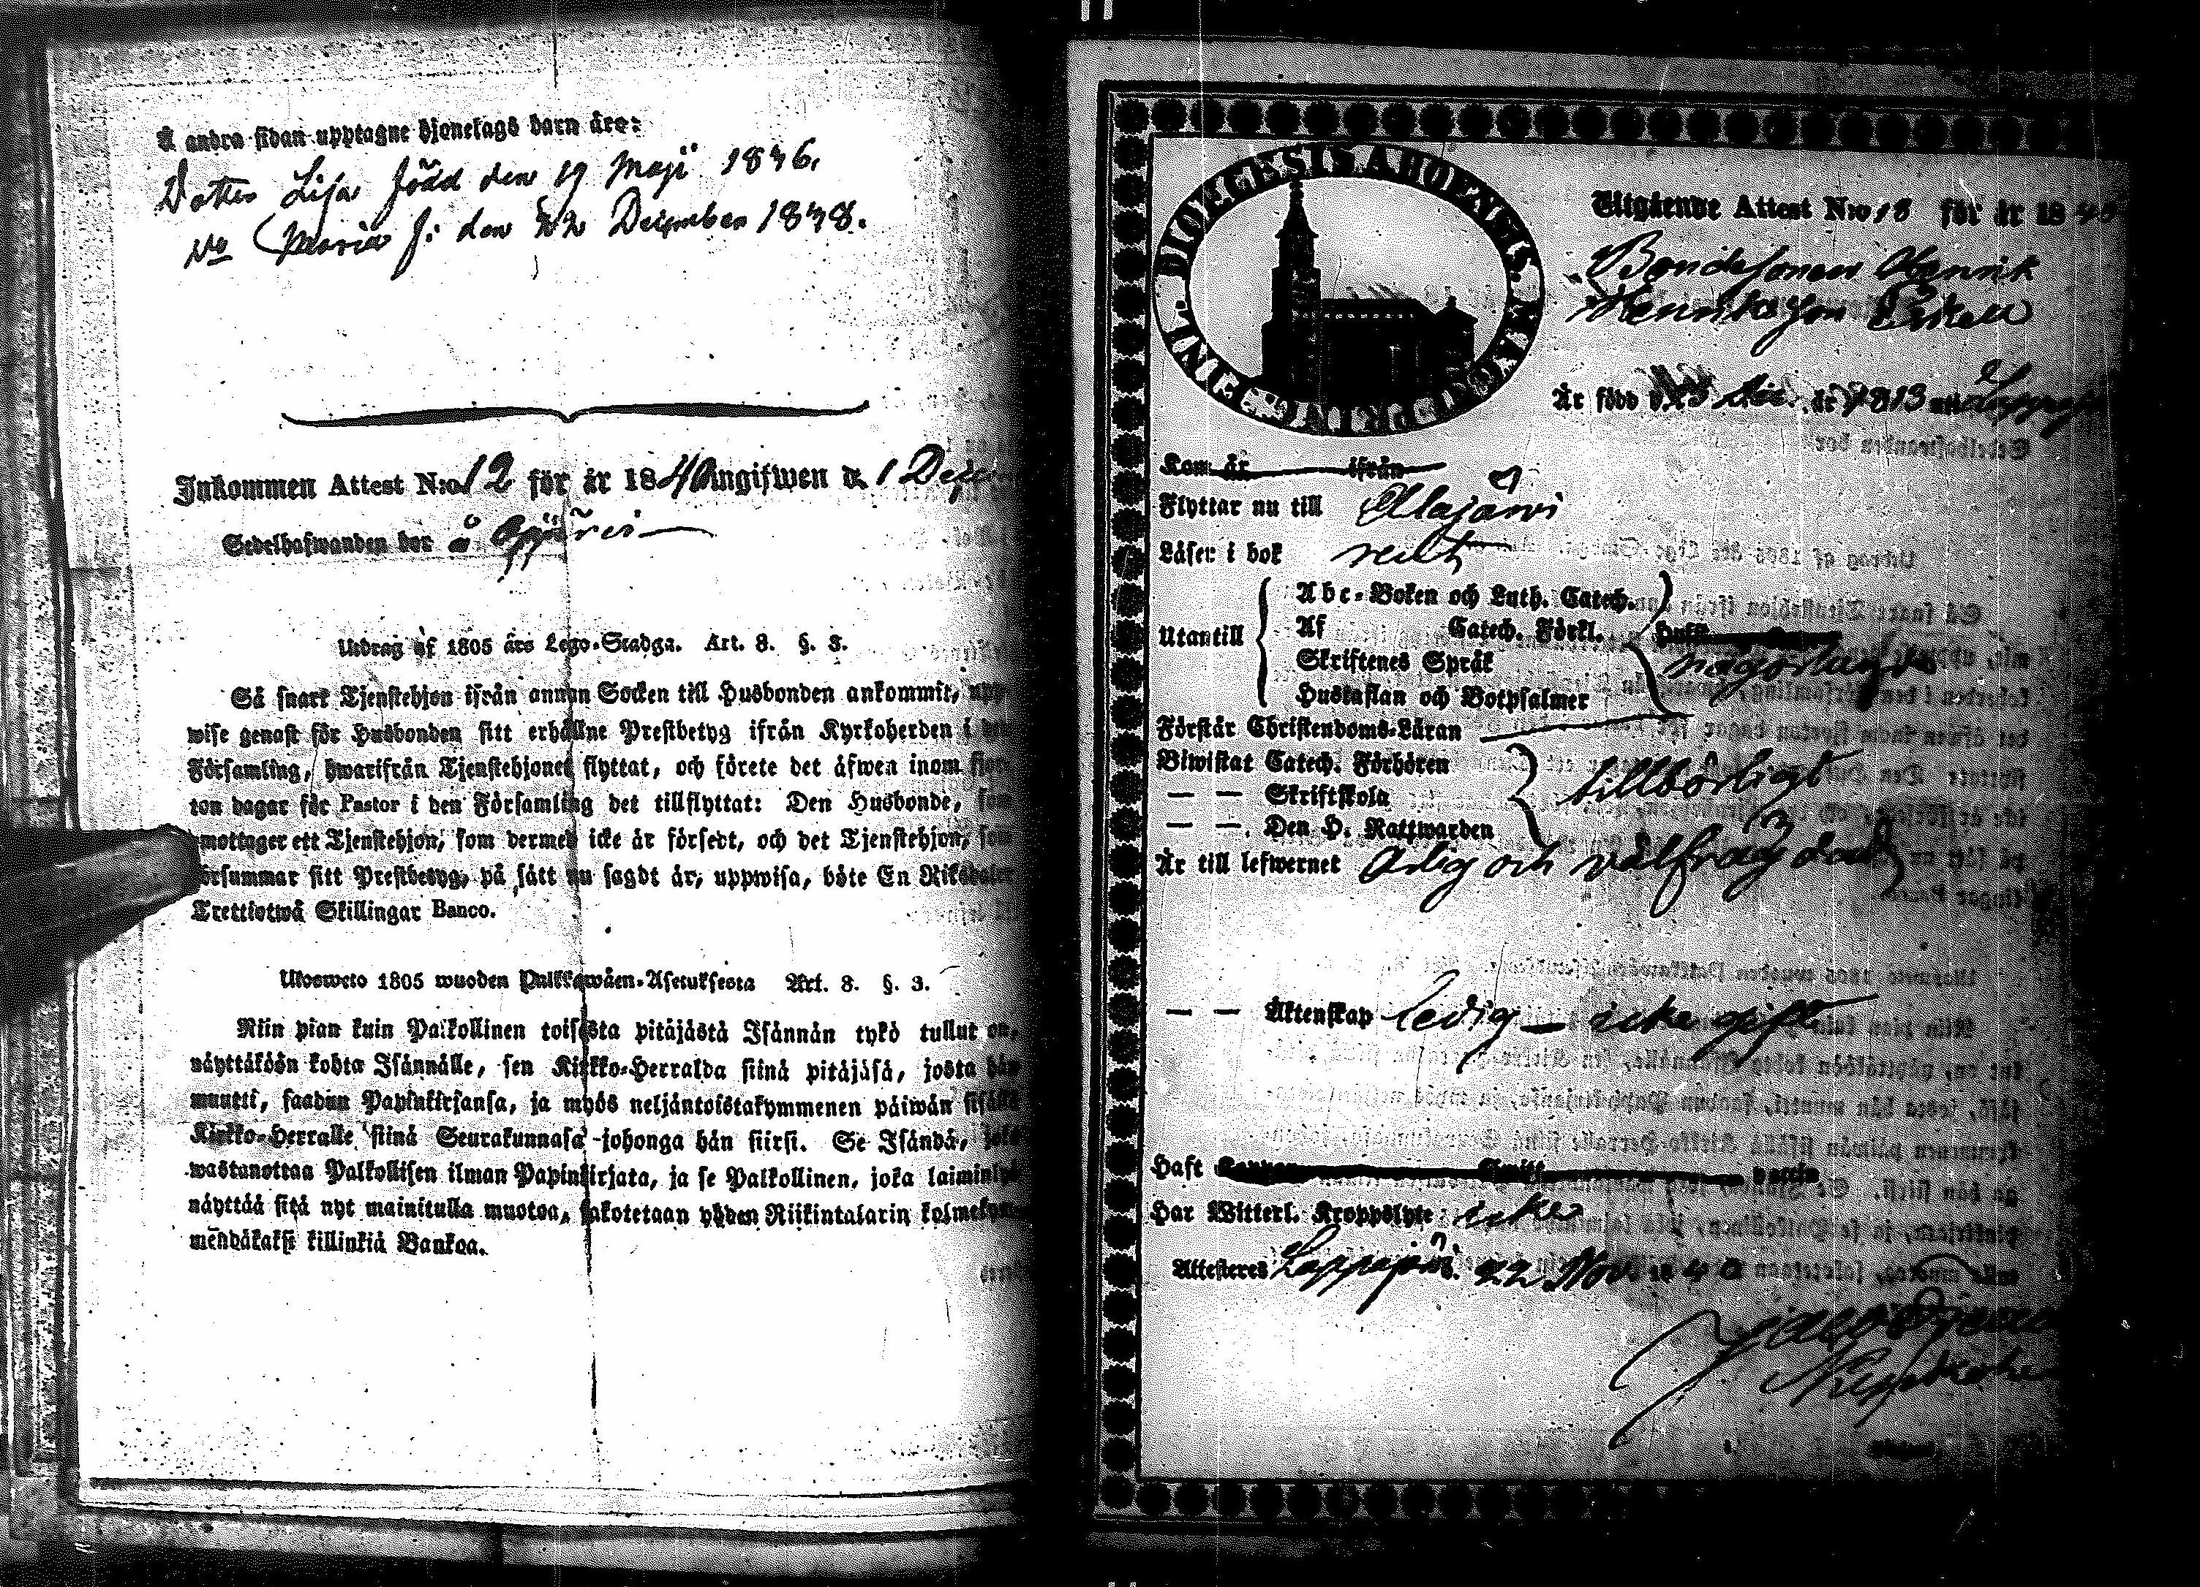 Å andra sidan upptagne hjonelags barn äro:
Dotter Lisa född den 19 Maji 1846.
Do Maria f: den 22 December 1848.
Inkommen Attest N:o 12 för år 1840 Angifwen d. 1 Decem
Sedelhafwanden bor å
Utdrag af 1805 års Lego-Stadga. Art. 8. §. 3.
Så snart Tjenstehjon ifrån annan Socken till Husbonden ankommit, upp-
wise genast för Husbonden sitt erhållne Prestbetyg ifrån Kyrkoherden i den
Församling, hwarifrån Tjenstehjonet flyttat, och förete det äfwen inom fjor-
ton dagar för Pastor i den Församling det tillflyttat: Den Husbonde, som
emottager ett Tjenstehjon, som dermed icke är försedt, och det Tjenstehjon, som
försummar sitt Prestbetyg, på sätt nu sagdt är, uppwisa, böte En Riksdaler
Trettiotwå Skillingar Banco.
Ulosweto 1805 wuoden Palkkawäen-Asetuksesta Art. 8. §. 3.
Niin pian kuin Palkollinen toisesta pitäjästä Isännän tykö tullut on,
näyttäköön kohta Isännälle, sen Kirkko-Herralda siinä pitäjäsä, josta hän
muutti, saadun Papinkirjansa, ja myös neljäntoistakymmenen päiwän sisällä
Kirkko-Herralle siinä Seurakunnasa johonga hän siirsi. Se Isändä, joka
wastanottaa Palkollisen ilman Papinkirjata, ja se Palkollinen, joka laiminlyö
näyttää sitä nyt mainitulla muotoa, sakotetaan yhden Riikintalarin kolmekym-
mendäkaksi killinkiä Bankoa.
DIOECESIS ABOENSIS. MAGNI PRINC. FINL.
Utgående Attest N:o 18 för år 1840
Bondesonen Henrik
Henriksson
Är född d. Dec. år 1813 uti Lappajä
Kom år ifrån
Flyttar nu till Alajärwi
Läser i bok rent
Utantill
Abc-Boken och Luth. Catech.
Af Catech. Förkl.
Skriftenes Språk
Hustaflan och Botpsalmer
någorlunda
Förstår Christendoms-Läran
Biwistat Catech. Förhören
— — Skriftskola
— — Den H. Nattwarden
tillbörligt
Är till lefwernet ärlig och välfrägdad
— — Äktenskap ledig — icke gift
Haft Koppor
Har Witterl. Kroppslyte icke
Attesteres Lappajärvi 22 Nov. 1840